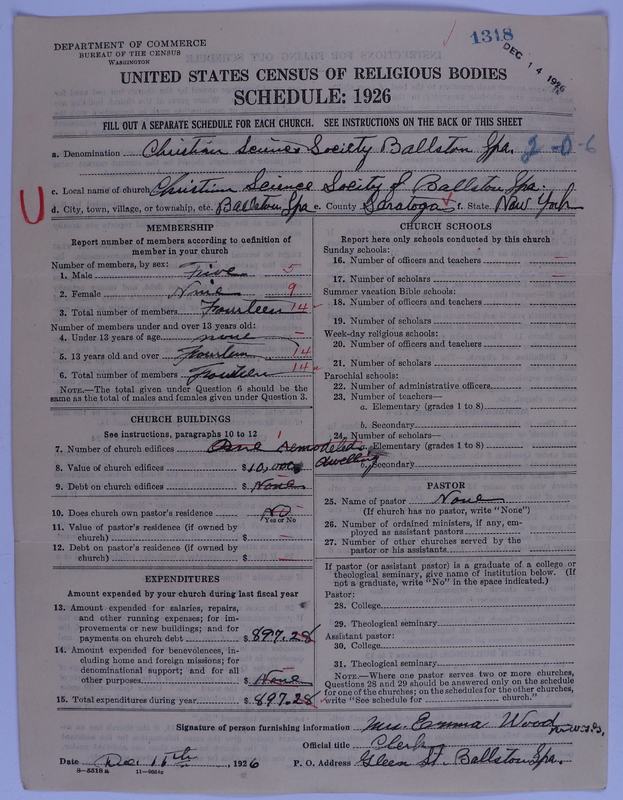 1318
DEC 14 1926
DEPARTMENT OF COMMERCE
BUREAU OF THE CENSUS
WASHINGTON
UNITED STATES CENSUS OF RELIGIOUS BODIES
SCHEDULE: 1926
FILL OUT A SEPARATE SCHEDULE FOR EACH CHURCH. SEE INSTRUCTIONS ON THE BACK OF THIS SHEET
a. Denomination Christian Science Society Ballston Spa. 2-0-6
c. Local name of church Christian Science Society of Ballston Spa.
U d. City, town, village, or township, etc. Ballston Spa e. County Saratoga f. State New York
MEMBERSHIP
Report number of members according to definition of
member in your church
Number of members, by sex:
1. Male Five 5
2. Female Nine 9
3. Total number of members Fourteen 14
Number of members under and over 13 years old:
4. Under 13 years of age none –
5. 13 years old and over Fourteen 14
6. Total number of members Fourteen 14
NOTE.—The total given under Question 6 should be
the same as the total of males and females given under Question 3.
CHURCH BUILDINGS
See instructions, paragraphs 10 to 12
7. Number of church edifices One remodeled dwelling 1
8. Value of church edifices $10,000
9. Debt on church edifices $ None
10. Does church own pastor's residence No
Yes or No
11. Value of pastor's residence (if owned by
church) $ –
12. Debt on pastor's residence (if owned by
church) $ –
EXPENDITURES
Amount expended by your church during last fiscal year
13. Amount expended for salaries, repairs,
and other running expenses; for im-
provements or new buildings; and for
payments on church debt $ 897.28
14. Amount expended for benevolences, in-
cluding home and foreign missions; for
denominational support; and for all
other purposes $ None
15. Total expenditures during year $ 897.28
CHURCH SCHOOLS
Report here only schools conducted by this church
Sunday schools:
16. Number of officers and teachers –
17. Number of scholars –
Summer vacation Bible schools:
18. Number of officers and teachers
19. Number of scholars
Week-day religious schools:
20. Number of officers and teachers
21. Number of scholars
Parochial schools:
22. Number of administrative officers
23. Number of teachers—
a. Elementary (grades 1 to 8)
b. Secondary
24. Number of scholars—
a. Elementary (grades 1 to 8)
b. Secondary
PASTOR
25. Name of pastor None
(If church has no pastor, write "None")
26. Number of ordained ministers, if any, em-
ployed as assistant pastors
27. Number of other churches served by the
pastor or his assistants
If pastor (or assistant pastor) is a graduate of a college or
theological seminary, give name of institution below. (If
not a graduate, write "No" in the space indicated.)
Pastor:
28. College
29. Theological seminary
Assistant pastor:
30. College
31. Theological seminary
NOTE.—Where one pastor serves two or more churches,
Questions 28 and 29 should be answered only on the schedule
for one of the churches; on the schedules for the other churches,
write "See schedule for church."
Signature of person furnishing information Mrs Emma Wood
Official title Clerk
Date Dec. 11th, 1926 P. O. Address Gleen St. Ballston Spa.
8—5518a 11—9052